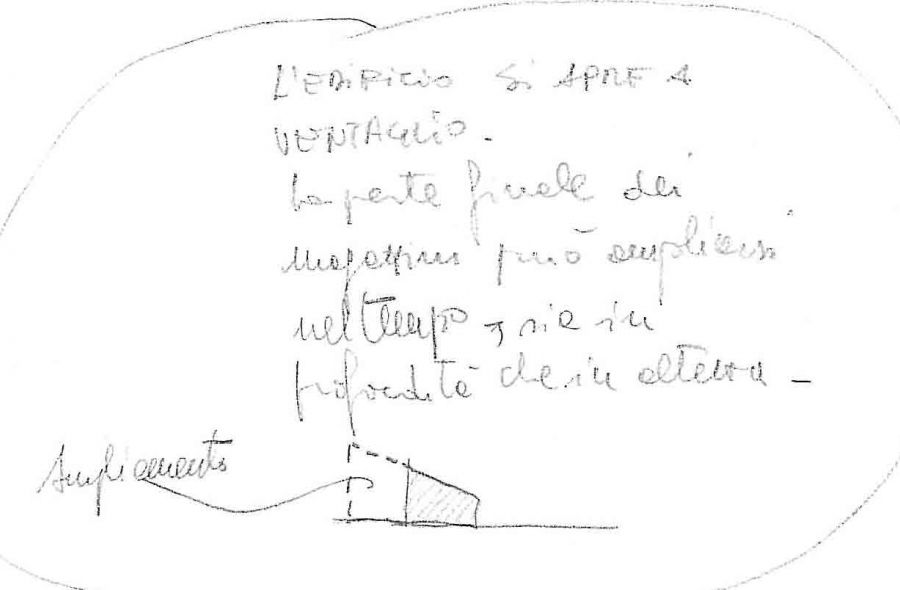 L'EDIFICIO SI APRE A
VENTAGLIO.
La parte finale dei
magazzini può ampliarsi
nel tempo, sia in
profondità che in altezza –
Ampliamento